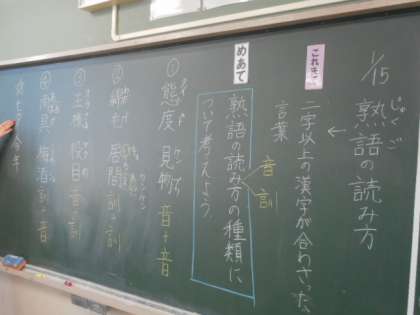 1/15
じゅくご
熟語の読み方
これまで
二字以上の漢字が合わさった、
言葉
めあて
音
訓
熟語の読み方の種類に
ついて考えよう。
① 態度 見物 音+音
②
居間 訓+訓
③
役目 音+訓
④ 雨具 梅酒 訓+音
今年